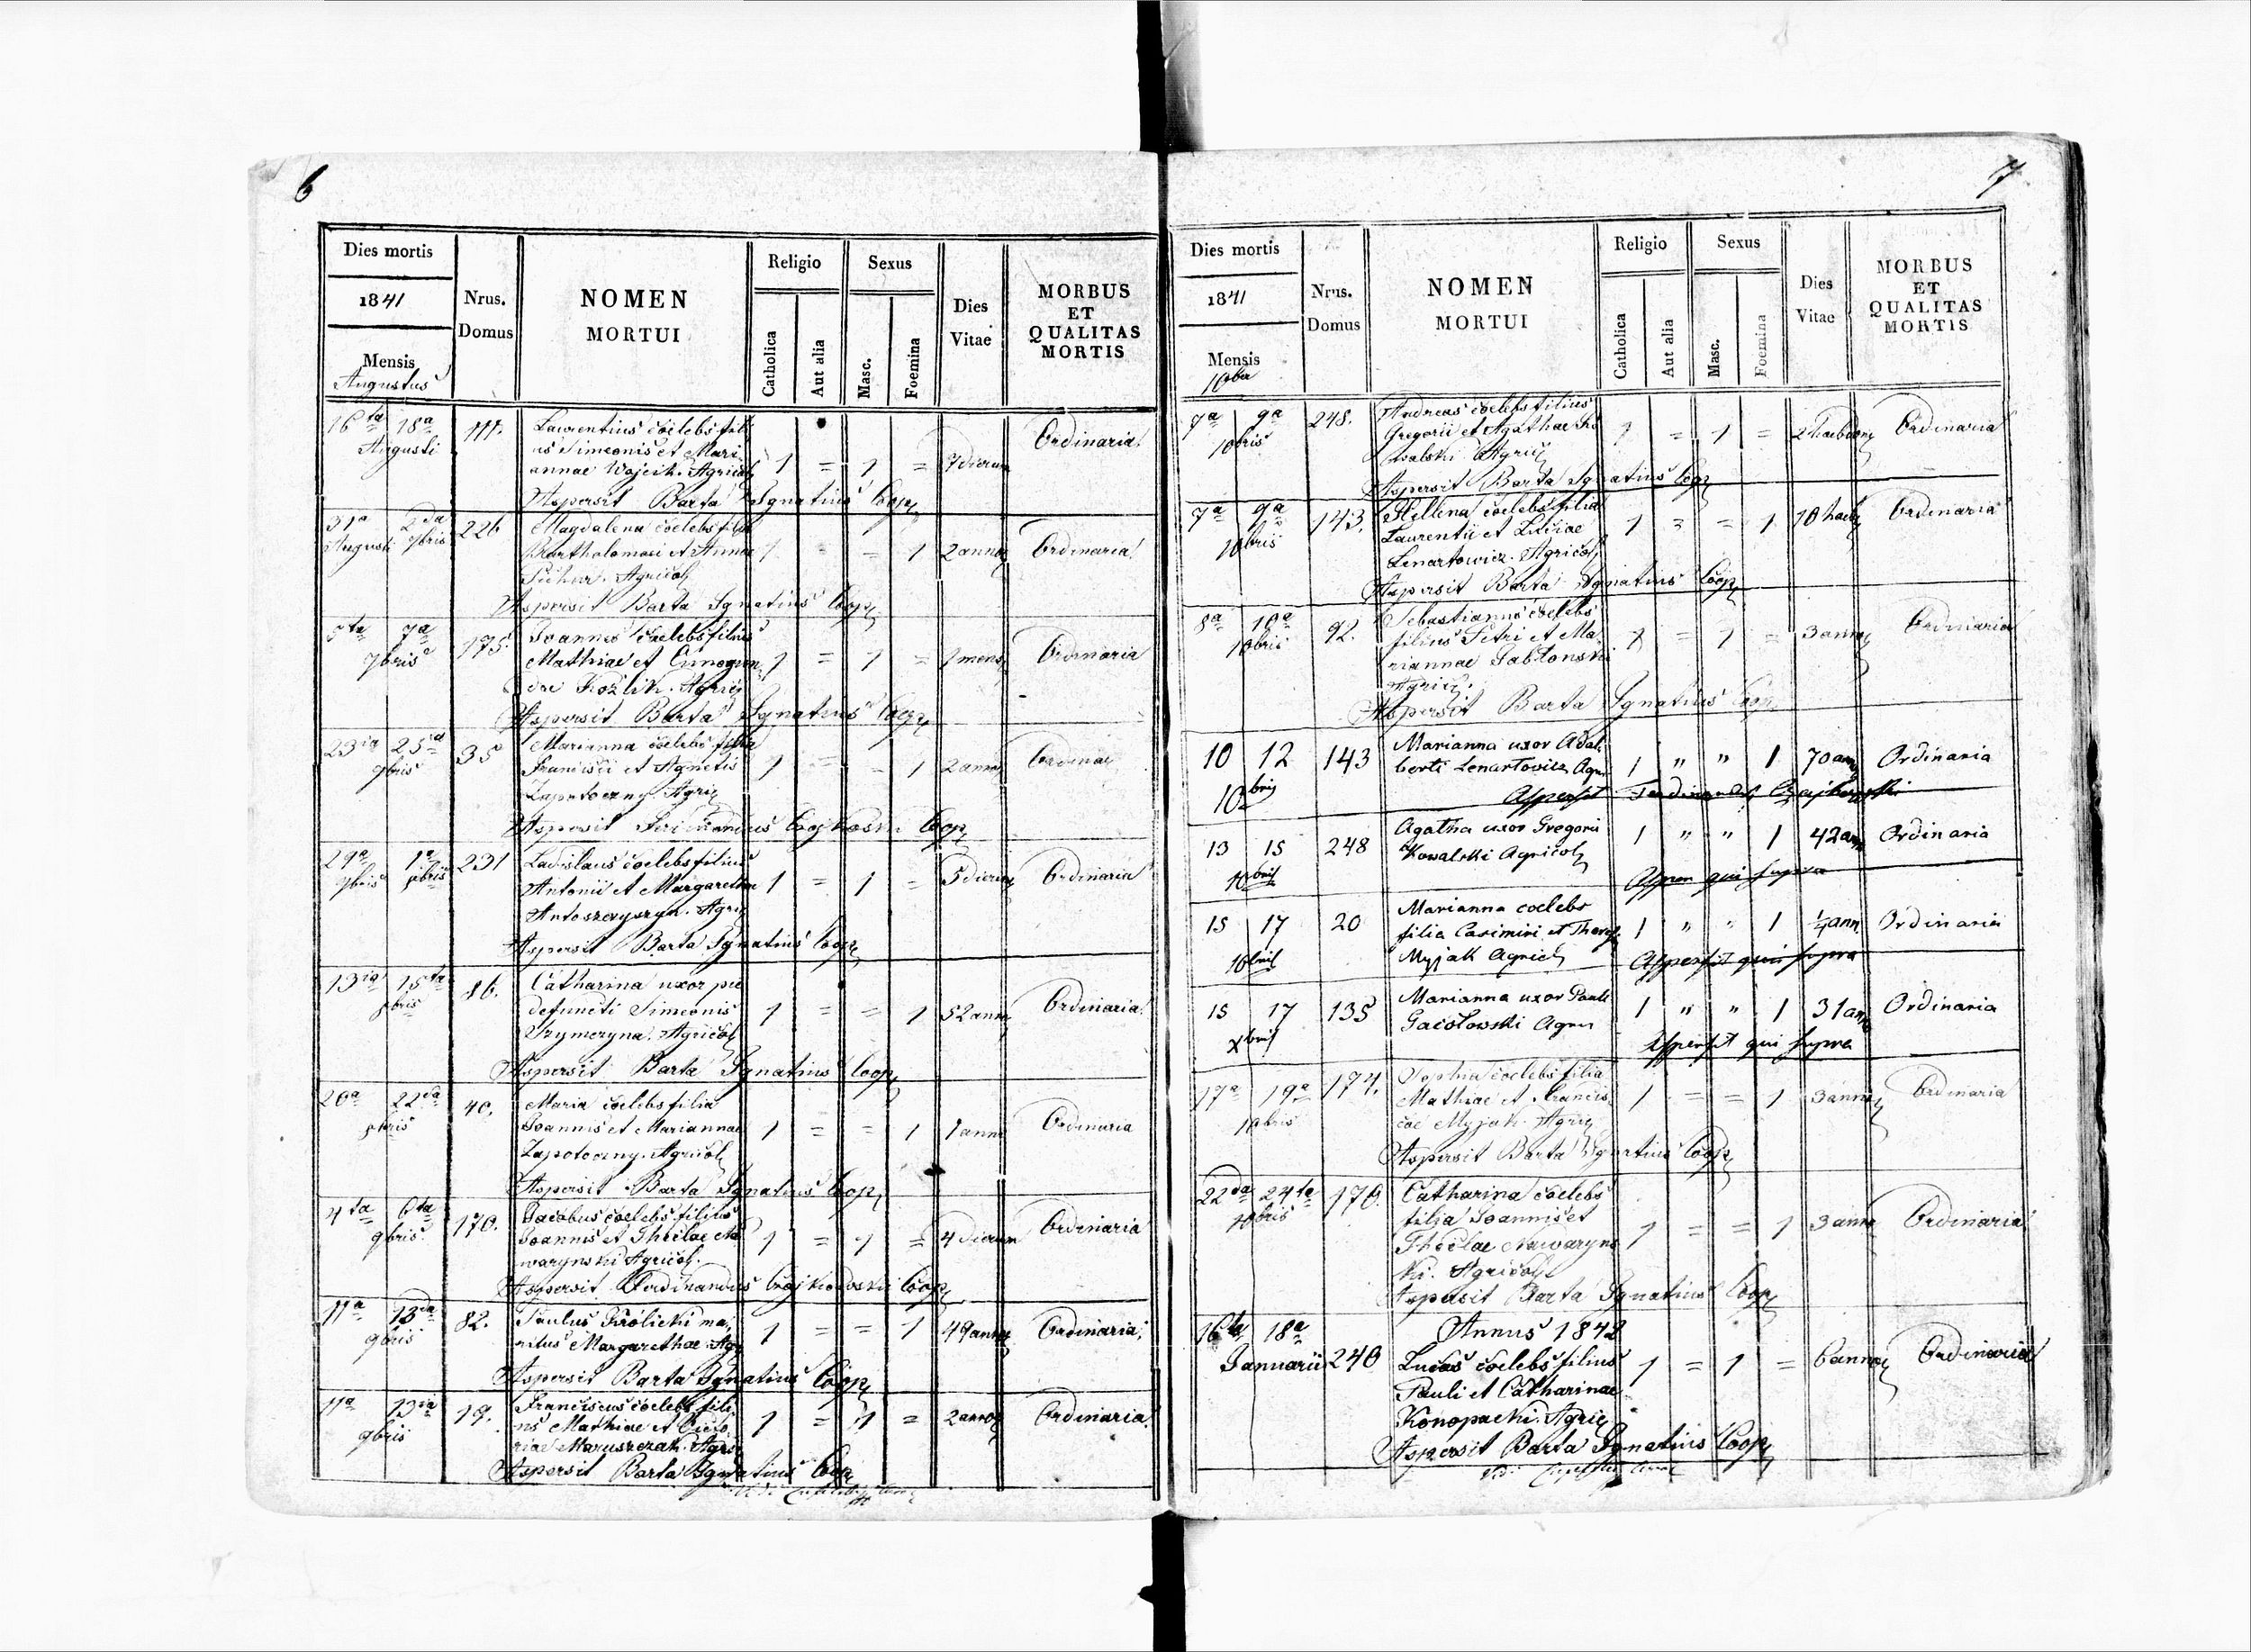 6
Dies mortis
1841
Mensis
Augustus
Nrus.
Domus
NOMEN
MORTUI
Religio
Catholica
Aut alia
Sexus
Masc.
Foemina
Dies
Vitae
MORBUS
ET
QUALITAS
MORTIS
16ta 18a 111. Laurentius coelebs fili
Augusti us Simeonis et Mari
annae Wojcik. Agricol 1 = 1 = 7 dierum Ordinaria
Aspersit Barta Ignatius Coop
31a 2da 226 Magdalena coelebs filia
Augusti 7bris Bartholomaei et Annae 1 = = 1 2 annor Ordinaria
Agricol
Aspersit Barta Ignatius Coop
5ta 7a 175. Joannes coelebs filius
7bris Mathiae et Cunegun 1 = 1 = 1 mens Ordinaria
dae Kozlik. Agric
Aspersit Barta Ignatius Coop
23ia 25ta 35 Marianna coelebs filia
7bris Francisci et Agnetis 1 = = 1 2 annor Ordinar
Zapotoczny. Agric
Aspersit Ferdinandus Coop
29a 1a 231 Ladislaus coelebs filius
7bris 8bris Antonii et Margarethae 1 = 1 = 5 dierum Ordinaria
Agric
Aspersit Barta Ignatius Coop
13ia 15ta 86. Catharina uxor prae
8bris defuncti Simeonis 1 = = 1 52 annor Ordinaria
Szymeryna. Agricol
Aspersit Barta Ignatius Coop
20a 22da 40. Maria coelebs filia
8bris Joannis et Mariannae 1 = = 1 1 anni Ordinaria
Zapotoczny. Agricol
Aspersit Barta Ignatius Coop
4ta 6ta 170. Jacobus coelebs filius
9bris Joannis et Theclae Na 1 = 1 = 4 dierum Ordinaria
warynski Agricol.
Aspersit Ferdinandus Coop
11a 13a 82. Paulus Królicki ma
9bris ritus Margarethae. Agr 1 = = 1 49 annor Ordinaria
Aspersit Barta Ignatius Coop
11a 13ia 19. Franciscus coelebs fili
9bris us Mathiae et Victo 1 = 1 = 2 annor Ordinaria
riae Maruszczak. Agric
Aspersit Barta Ignatius Coop
7
Dies mortis
1841
Mensis
10ber
Nrus.
Domus
NOMEN
MORTUI
Religio
Catholica
Aut alia
Sexus
Masc.
Foemina
Dies
Vitae
MORBUS
ET
QUALITAS
MORTIS
7a 9a 248. Andreas coelebs filius
10bris Gregorii et Agathae Ko 1 = 1 = 2 haebdom Ordinaria
walski Agric
Aspersit Barta Ignatius Coop
7a 9a 143. Hellena coelebs filia
10bris Laurentii et 1 = = 1 10 haeb Ordinaria
Lenartowicz. Agricol
Aspersit Barta Ignatius Coop
8a 10a 92. Sebastianus coelebs
10bris filius Petri et Ma 1 = 1 = 3 annor Ordinaria
riannae Jabłonski
Agric.
Aspersit Barta Ignatius Coop
10 12 143 Marianna uxor Adal
10bris berti Lenartowicz Agri 1 " " 1 70 ann Ordinaria
Aspersit Ferdinandus
13 15 248 Agatha uxor Gregorii
10bris Kowalski Agricol 1 " " 1 42 ann Ordinaria
Asper qui supra
15 17 20 Marianna coelebs
10bris filia Casimiri et Theres 1 " " 1 ¼ ann. Ordinaria
Myjak Agricol
Aspersit qui supra
15 17 135 Marianna uxor Pauli
Xbris Gacołowski Agri 1 " " 1 31 ann Ordinaria
Aspersit qui supra
17a 19a 174. Sophia coelebs filia
10bris Mathiae et Francis 1 = = 1 3 annor Ordinaria
cae Myjak. Agric
Aspersit Barta Ignatius Coop
22da 24ta 170. Catharina coelebs
10bris filia Joannis et
Theclae Nawaryns 1 = = 1 3 annor Ordinaria
ki. Agricol
Aspersit Barta Ignatius Coop
Annus 1842
16ta 18a
Januarii 240 Lucas coelebs filius 1 = 1 = 6 annor Ordinaria
Pauli et Catharinae
Konopacki. Agric
Aspersit Barta Ignatius Coop